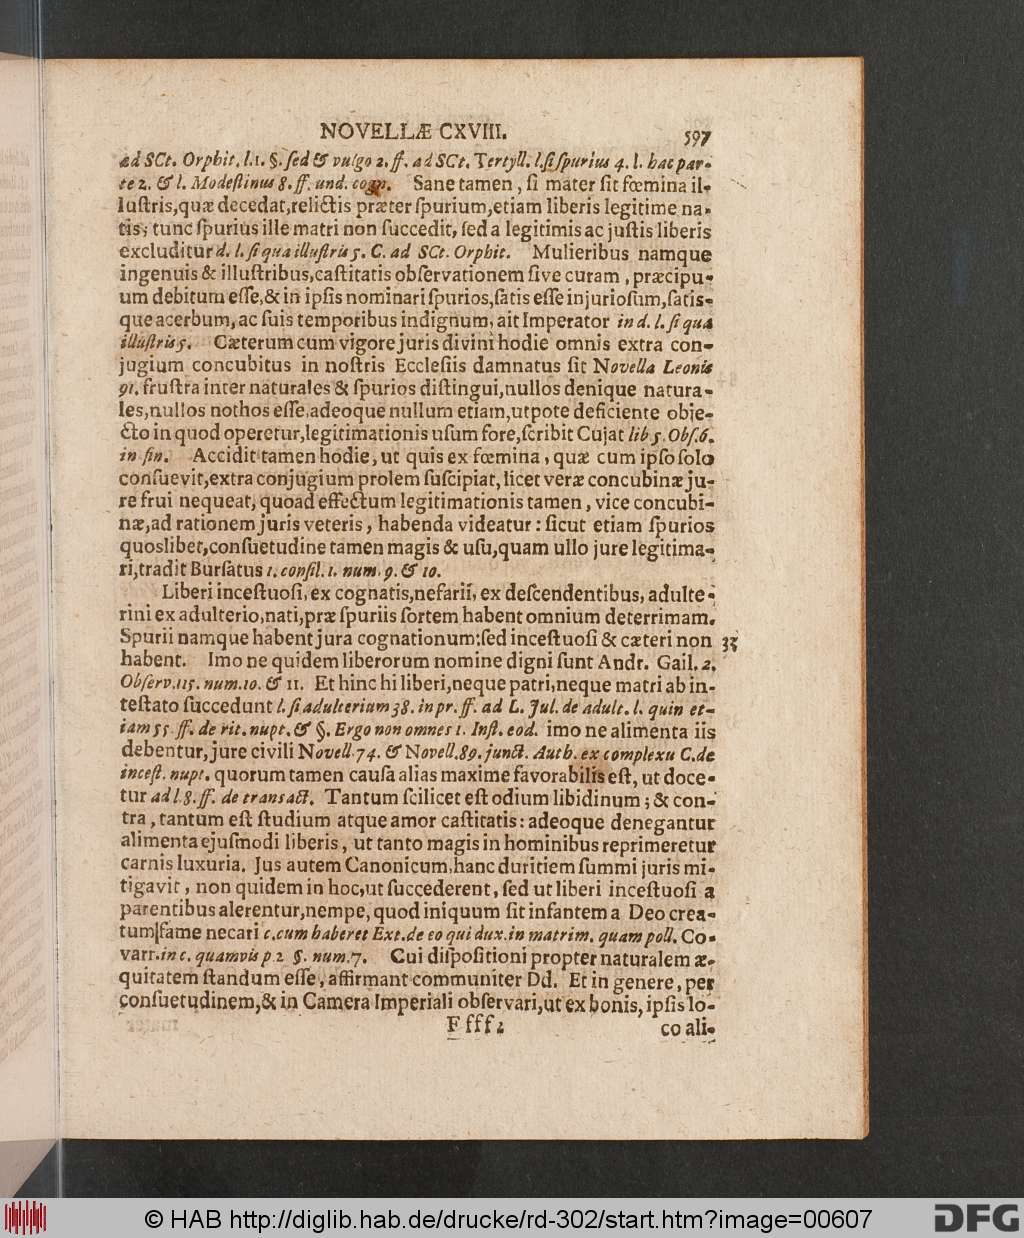 NOVELLÆ CXVIII. 597
ad SCt. Orphit, l.1. §. ſed & vulgo 2. ff. ad SCt. Tertyll. l. ſi ſpurius 4. l. hac par-
te 2. & l. Modeſtinus 8. ff. und. cogn. Sane tamen, ſi mater ſit fœmina il-
luſtris, quæ decedat, relictis præter ſpurium, etiam liberis legitime na-
tis; tunc ſpurius ille matri non ſuccedit, ſed a legitimis ac juſtis liberis
excluditur d. l. ſi qua illuſtris 5. C. ad SCt. Orphit. Mulieribus namque
ingenuis & illuſtribus, caſtitatis obſervationem ſive curam, præcipu-
um debitum eſſe, & in ipſis nominari ſpurios, ſatis eſſe injurioſum, ſatis-
que acerbum, ac ſuis temporibus indignum, ait Imperator in d. l. ſi qua
illuſtris 5. Cæterum cum vigore juris divini hodie omnis extra con-
jugium concubitus in noſtris Eccleſiis damnatus ſit Novella Leonis
91. fruſtra inter naturales & ſpurios diſtingui, nullos denique natura-
les, nullos nothos eſſe, adeoque nullum etiam, utpote deficiente obje-
cto in quod operetur, legitimationis uſum fore, ſcribit Cujat lib 5. Obſ. 6.
in fin. Accidit tamen hodie, ut quis ex fœmina, quæ cum ipſo ſolo
conſuevit, extra conjugium prolem ſuſcipiat, licet veræ concubinæ ju-
re frui nequeat, quoad effectum legitimationis tamen, vice concubi-
næ, ad rationem juris veteris, habenda videatur: ſicut etiam ſpurios
quoslibet, conſuetudine tamen magis & uſu, quam ullo jure legitima-
ri, tradit Burſatus 1. conſil. 1. num. 9. & 10.
Liberi inceſtuoſi, ex cognatis, nefarii, ex deſcendentibus, adulte-
rini ex adulterio, nati, præ ſpuriis ſortem habent omnium deterrimam.
Spurii namque habent jura cognationum: ſed inceſtuoſi & cæteri non 33
habent. Imo ne quidem liberorum nomine digni ſunt Andr. Gail. 2.
Obſerv. 115. num. 10. & 11. Et hinc hi liberi, neque patri, neque matri ab in-
teſtato ſuccedunt l. ſi adulterium 38. in pr. ff. ad L. Jul. de adult. l. quin et-
iam 55. ff. de rit. nupt. & §. Ergo non omnes 1. Inſt. eod. imo ne alimenta iis
debentur, jure civili Novell. 74. & Novell. 89. junct. Auth. ex complexu C. de
inceſt. nupt. quorum tamen cauſa alias maxime favorabilis eſt, ut doce-
tur ad l. 8. ff. de transact. Tantum ſcilicet eſt odium libidinum; & con-
tra, tantum eſt ſtudium atque amor caſtitatis: adeoque denegantur
alimenta ejuſmodi liberis, ut tanto magis in hominibus reprimeretur
carnis luxuria. Jus autem Canonicum, hanc duritiem ſummi juris mi-
tigavit, non quidem in hoc, ut ſuccederent, ſed ut liberi inceſtuoſi a
parentibus alerentur, nempe, quod iniquum ſit infantem a Deo crea-
tum fame necari c. cum haberet Ext. de eo qui dux. in matrim. quam poll. Co-
varr. in c. quamvis p 2 §. num. 7. Cui diſpoſitioni propter naturalem æ-
quitatem ſtandum eſſe, affirmant communiter Dd. Et in genere, per
conſuetudinem, & in Camera Imperiali obſervari, ut ex bonis, ipſis lo-
F fff 2 co ali-
© HAB http://diglib.hab.de/drucke/rd-302/start.htm?image=00607
DFG